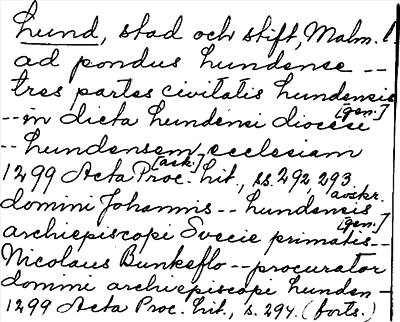 Lund, stad och stift, Malm. l.
ad pondus lundense --
tres partes civitatis lundensis
[gen.]
-- in dicta lundensi diocesi
-- lundensem ecclesiam
[ack.]
1299 Acta Proc. lit., ss. 292, 293
avskr.
domini Johannis -- lundensis
[gen.]
archiepiscopi Svecie primatis --
Nicolaus Bunkeflo -- procurator
domini archiepiscopi lunden -
1299 Acta Proc. lit., s. 294. (forts.)